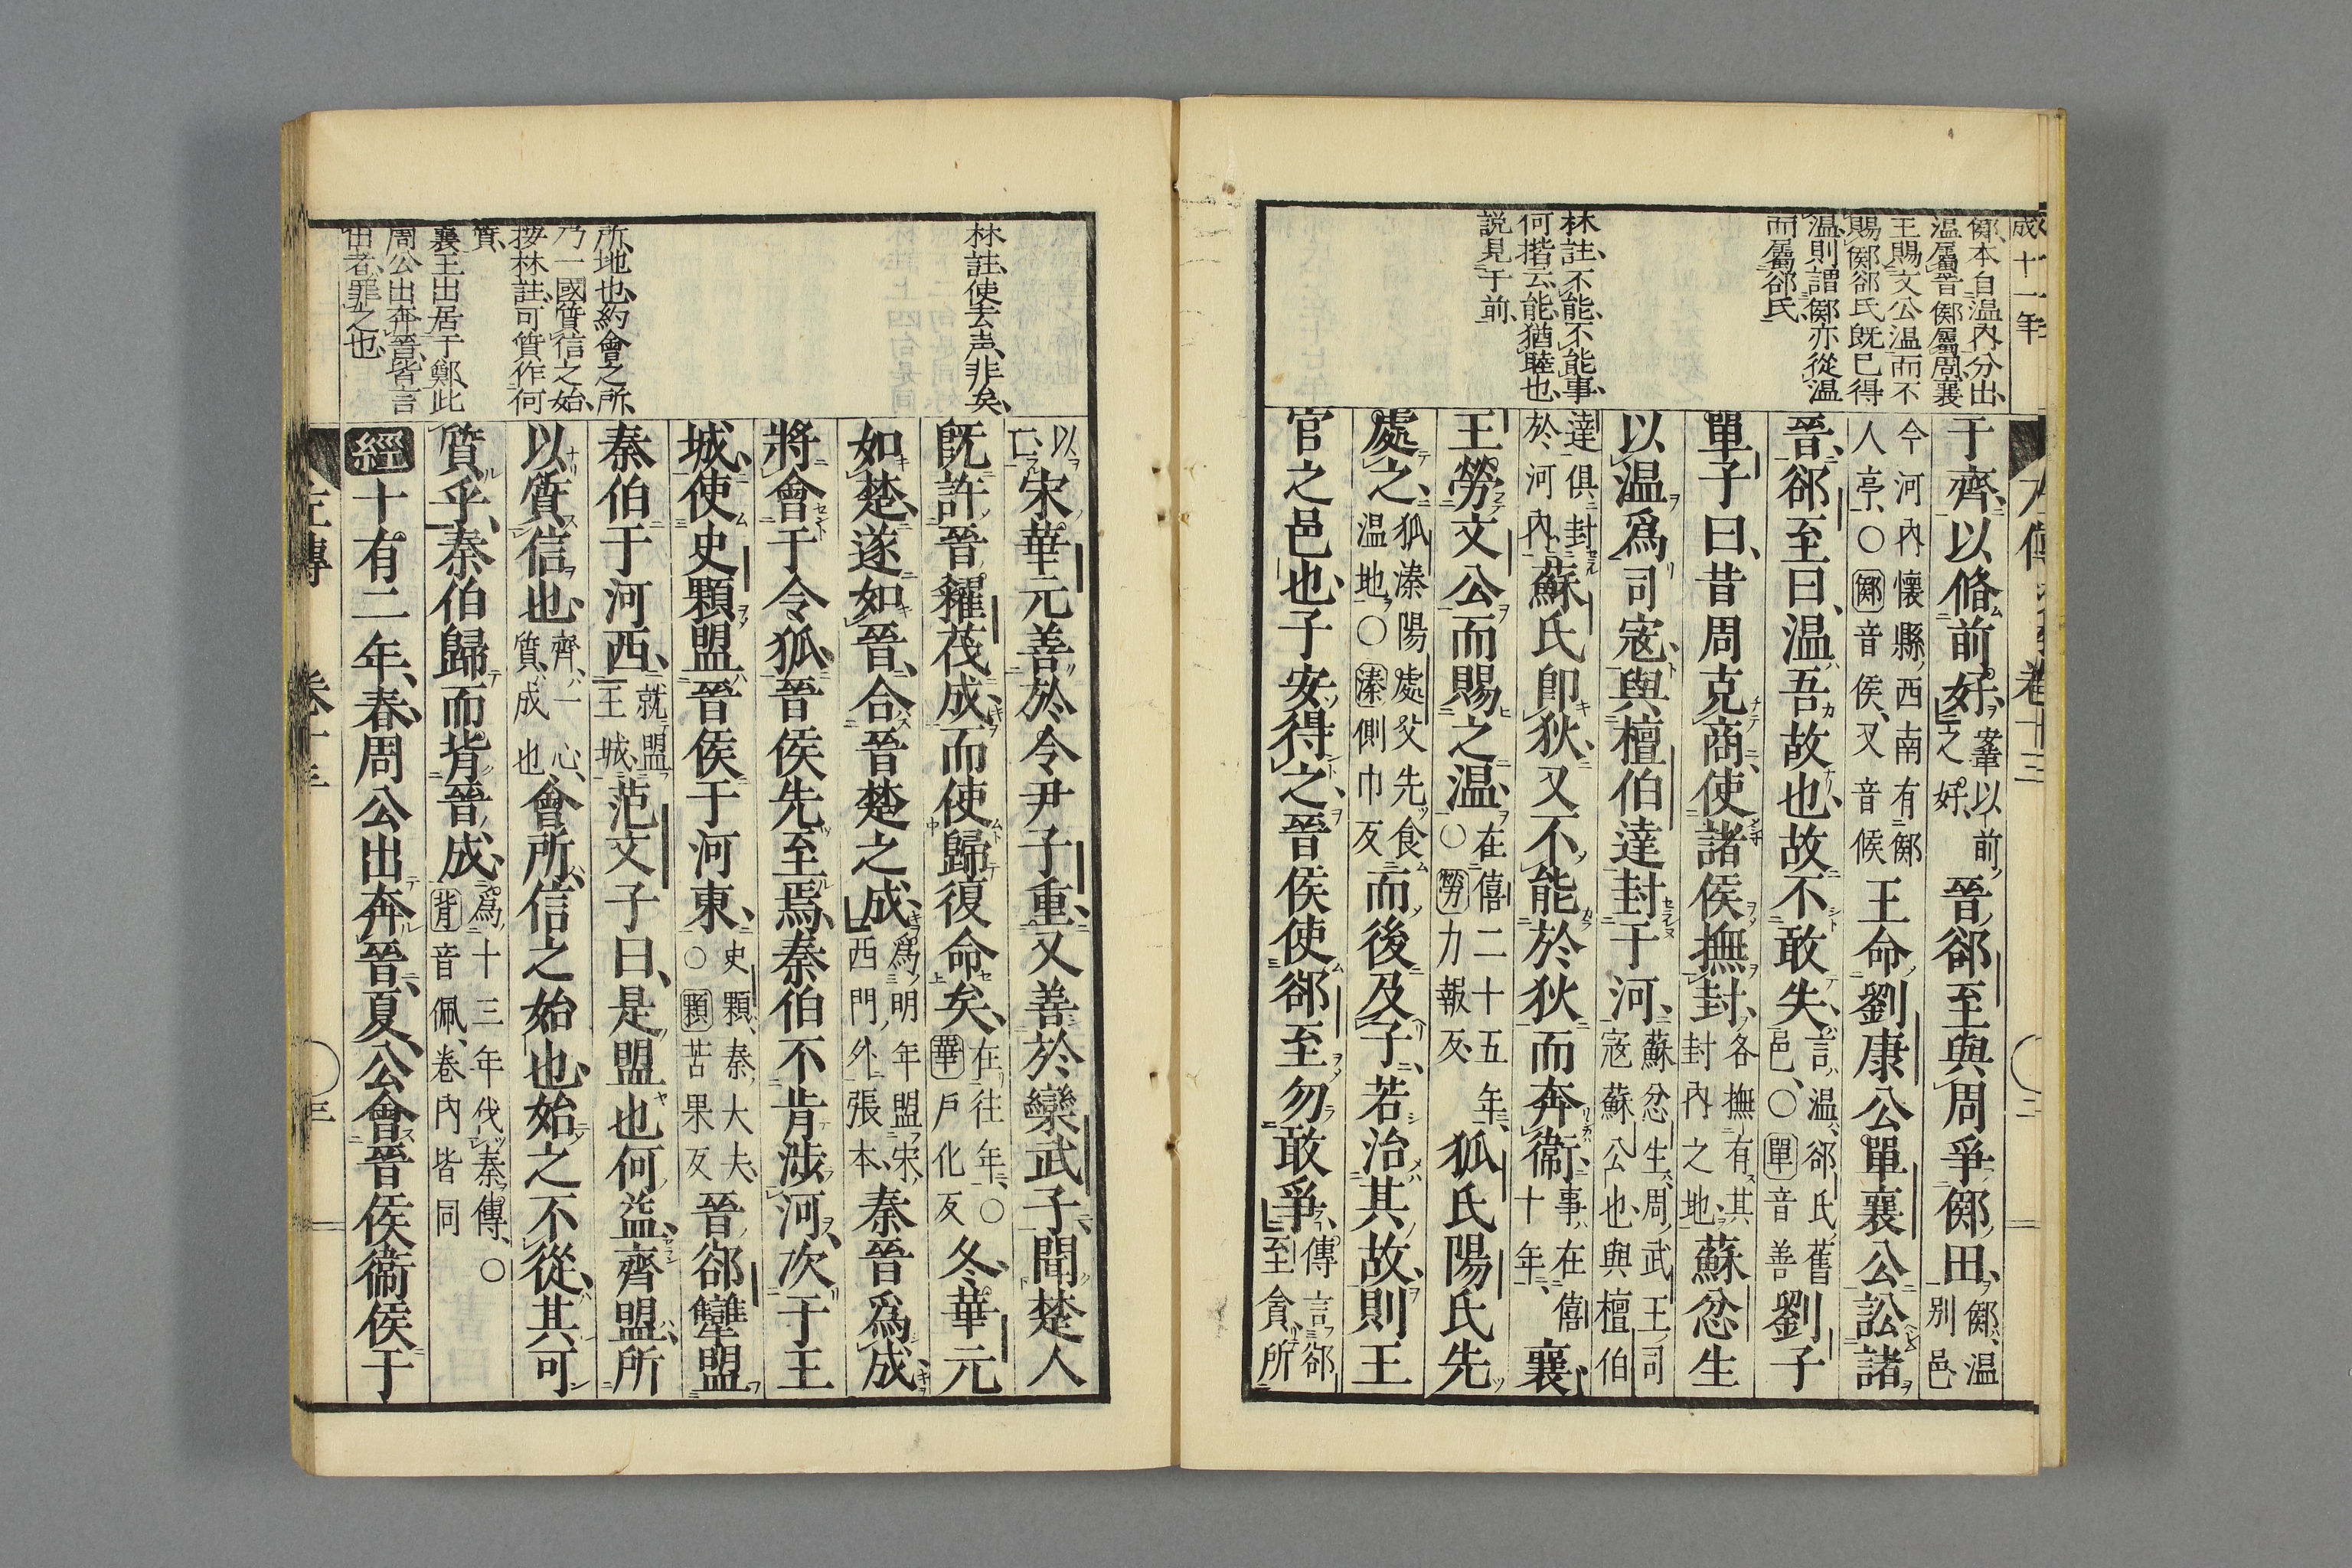 成十一年
鄇本自温内分出
温屬晉鄇屬周襄
王賜文公温而不
賜鄇郤氏既已得
温則謂鄇亦從温
而屬郤氏
林註不能不能事
何揩云能猶睦也
説見于前
于齊以脩前好鞌以前之好晉郤至與周爭鄇田鄇温別邑
今河内懷縣西南有鄇人亭○鄇音侯又音候王命劉康公單襄公訟諸
晉郤至曰温吾故也故不敢失言温郤氏舊邑○單音善劉子
單子曰昔周克商使諸侯撫封各撫有其封内之地蘇忿生
以温爲司寇與檀伯達封于河蘇忿生周武王司寇蘇公也與檀伯
達俱封於河内蘇氏即狄又不能於狄而奔衞事在僖十年襄
王勞文公而賜之温在僖二十五年○勞力報反狐氏陽氏先
處之狐溱陽處父先食温地○溱側巾反而後及子若治其故則王
官之邑也子安得之晉侯使郤至勿敢爭傳言郤至貪所
以亡宋華元善於令尹子重又善於欒武子聞楚人
既許晉糴茷成而使歸復命矣在往年○華戶化反冬華元
如楚遂如晉合晉楚之成爲明年盟宋西門外張本秦晉爲成
將會于令狐晉侯先至焉秦伯不肯涉河次于王
城使史顆盟晉侯于河東史顆秦大夫○顆苦果反晉郤犫盟
秦伯于河西就盟王城范文子曰是盟也何益齊盟所
以質信也齊一心質成也會所信之始也始之不從其可
質乎秦伯歸而背晉成爲十三年伐秦傳○背音佩卷内皆同
經十有二年春周公出奔晉夏公會晉侯衞侯于
林註使去声非矣
所地也約會之所
乃一國質信之始
按林註可質作何
質
襄王出居于鄭此
周公出奔晉皆言
出者罪之也
左傳 卷十三
三